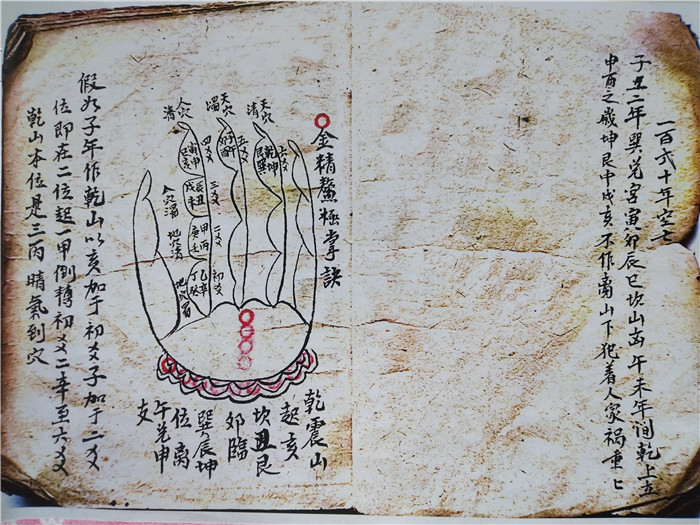 一百弍十年空亡
子丑二年巽兑宫寅卯辰巳坎山离午未年间乾上立
申酉之歲坤艮中戌亥不作离山下犯着人家祸重匕
金精鰲極掌訣
天穴清
六爻
乾坤艮巽
天穴濁
五爻
子午卯酉
人穴清
四爻
寅申巳亥
人穴濁
三爻
辰丑戌未
地穴清
二爻
甲丙庚壬
地穴濁
初爻
乙辛丁癸
乾震山
起亥
坎丑艮
卯臨
巽辰坤
位离
午兑申
支
假如子年作乾山以亥加于初爻子加于二爻
位即在二位起一甲倒转初爻二辛至六爻
乾山本位是三丙晴氣到穴